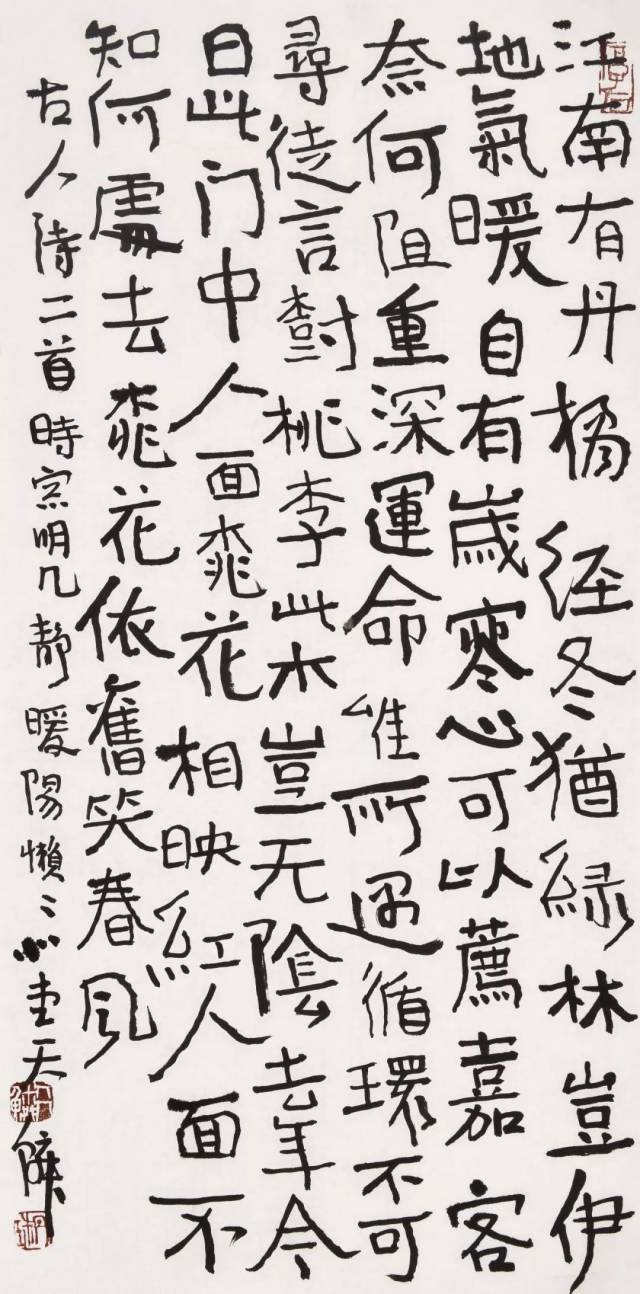 江南有丹橘経冬猶緑林豈伊
地氣暖自有歲寒心可以薦嘉客
奈何阻重深運命唯所遇循環不可
尋徒言樹桃李此木豈无陰去年今
日此门中人面桃花相映紅人面不
知何處去桃花依舊笑春风
古人诗二首時窓明几靜暖陽懶〻